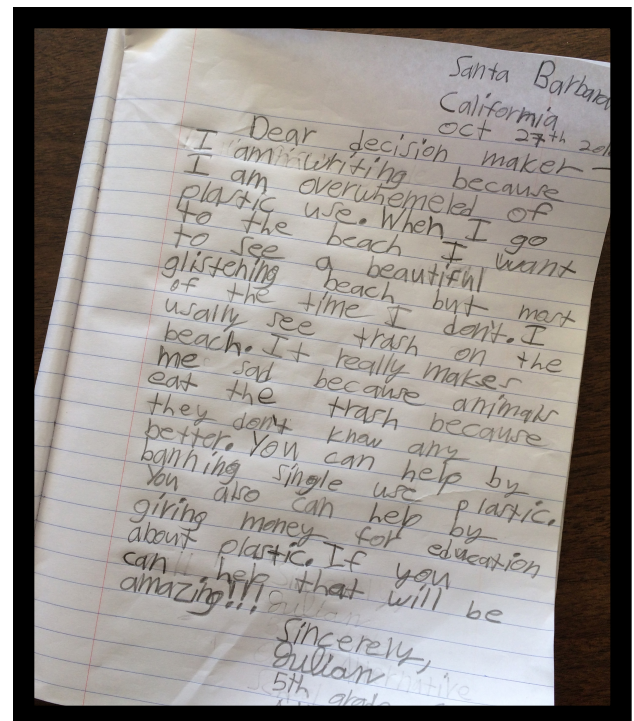 Santa Barbara
California
Oct 27th
Dear decision maker -
I am writing because
I am overwhemeled of
plastic use. When I go
to the beach I want
to see a beautiful
glistening beach but most
of the time I don't. I
usally see trash on the
beach. It really makes
me sad because animals
eat the trash because
they don't know any
better. You can help by
banning single use plastic.
You also can help by
giving money for education
about plastic. If you
can help that will be
amazing!!!
Sincerely,
Julian
5th grade